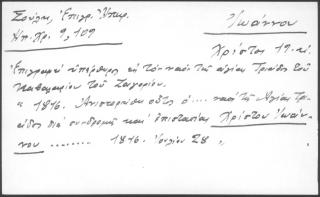 Σούλης, Ἐπιγρ. Ἠπειρ.
Ἠπ. Χρ. 9, 109
Ἰωάννου
Χρίστος 19. αἰ.
Ἐπιγραφή ὑπέρθυρος εἰς τόν ναόν τῆς ἁγίας Τριάδος τοῦ
Καπεσόβου τοῦ Ζαγορίου.
" 1816. Ἀνιστορήθη οὗτος ὁ .... ναός τῆς Ἁγίας Τρι-
άδος διά συνδρομῆς καί ἐπιστασίας Χρίστου Ἰωάν-
νου ......... 1816. Ἰουλίου 28 "